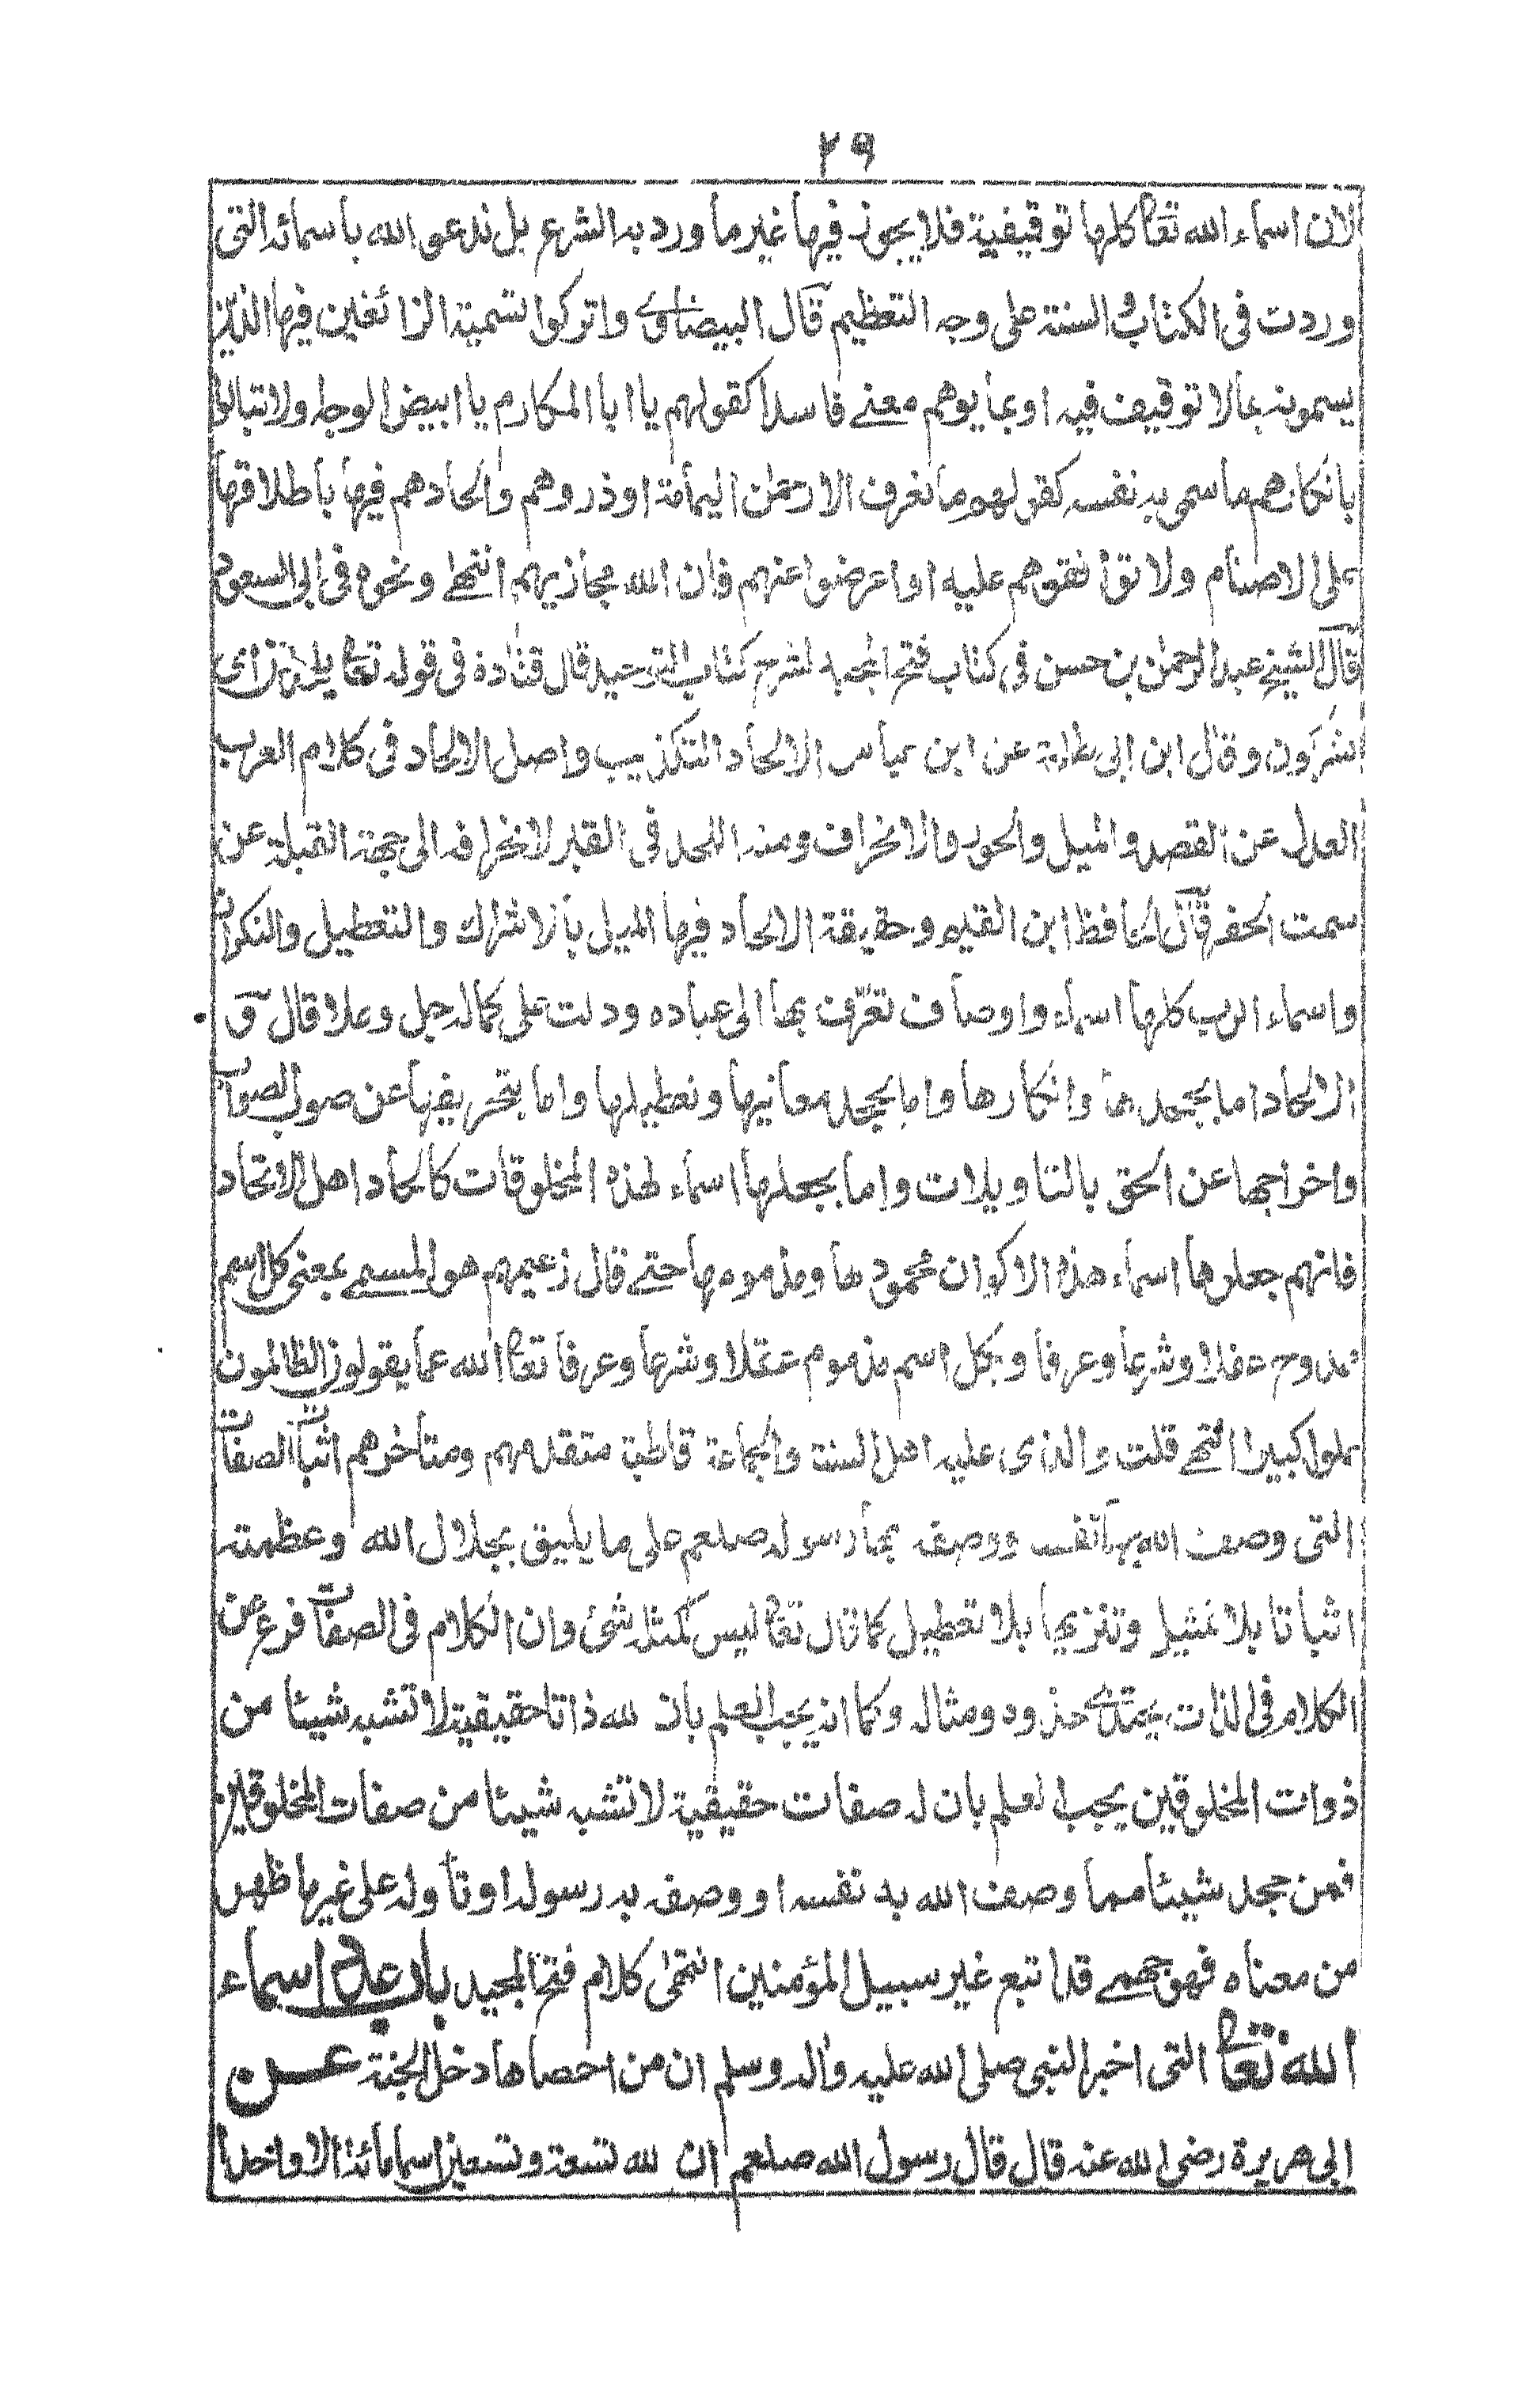 ٢٩
لان اسماء الله تعا كلها توقيفية فلا يجوز فيها غير ما ورد به الشرع بل ندعو الله باسمائه التى
وردت فى الكتاب والسنة على وجه التعظيم قال البيضاوى واتركوا تسمية الزائغين فيها الذين
يسمونه بما لا توقيف فيه او بما يوهم معنے فاسدا كقولهم يا ابا المكارم يا ابيض الوجه ولا تبالوا
بانكارهم ما سمى به نفسه كقولهم ما نعرف الا رحمٰن اليمامة او ذروهم والحادهم فيها باطلاقها
على الاصنام ولا توافقوهم عليه او اعرضوا عنهم فان الله مجازيهم انتهے ونحوه فى ابى السعود
قال الشيخ عبد الرحمٰن بن حسن فى كتاب فتح المجيد لشرح كتاب التوحيد قال قتادة فى قوله تعا يلحدون اى
يشركون وقال ابن ابى طلحة عن ابن عباس الالحاد التكذيب واصل الالحاد فى كلام العرب
العدل عن القصد والميل والجور والانحراف ومنه اللحد فى القبر لانحرافه الى جهة القبلة عن
سمت الحفر قال الحافظ ابن القيم وحقيقة الالحاد فيها الميل بالاشراك والتعطيل والنكران
واسماء الرب كلها اسماء واوصاف تعرّف بها الى عباده ودلت على كماله جل وعلا قال ق
الالحاد اما بجحدها وانكارها واما بجحد معانيها وتعطيلها واما بتحريفها عن صواب الصواب
واخراجها عن الحق بالتاويلات واما بجعلها اسماء لهذه المخلوقات كالحاد اهل الاتحاد
فانهم جعلوها اسماء هذه الاكوان محمودها ومذمومها حتے قال زعيمهم هو المسمے بمعنى كل اسم
ممدوح عقلا وشرعا وعرفا وبكل اسم مذموم عقلا وشرعا وعرفا تعا الله عما يقولون الظالمون
علوا كبيرا انتهے قلت والذى عليه اهل السنة والجماعة قاطبة متقدمهم ومتأخرهم اثبات الصفات
التى وصف الله بها نفسه ووصفه بها رسوله صلعم على ما يليق بجلال الله وعظمته
اثباتا بلا تمثيل وتنزيها بلا تعطيل كما قال تعا ليس كمثله شئ وان الكلام فى الصفات فرع عن
الكلام فى الذات يحتذى حذوه ومثاله وكما انه يجب العلم بان لله ذاتا حقيقية لا تشبه شيئا من
ذوات المخلوقين يجب العلم بان له صفات حقيقية لا تشبه شيئا من صفات المخلوقين
فمن جحد شيئا مما وصف الله به نفسه او وصفه به رسوله او تأوله على غير ما ظهر
من معناه فهو جهمے قد اتبع غير سبيل المؤمنين انتهى كلام فتح المجيد باب عد اسماء
الله تعا التى اخبر النبى صلى الله عليه واٰله وسلم ان من احصاها دخل الجنة عن
ابى هريرة رضى الله عنه قال قال رسول الله صلعم ان لله تسعة وتسعين اسما مائة الا واحدا